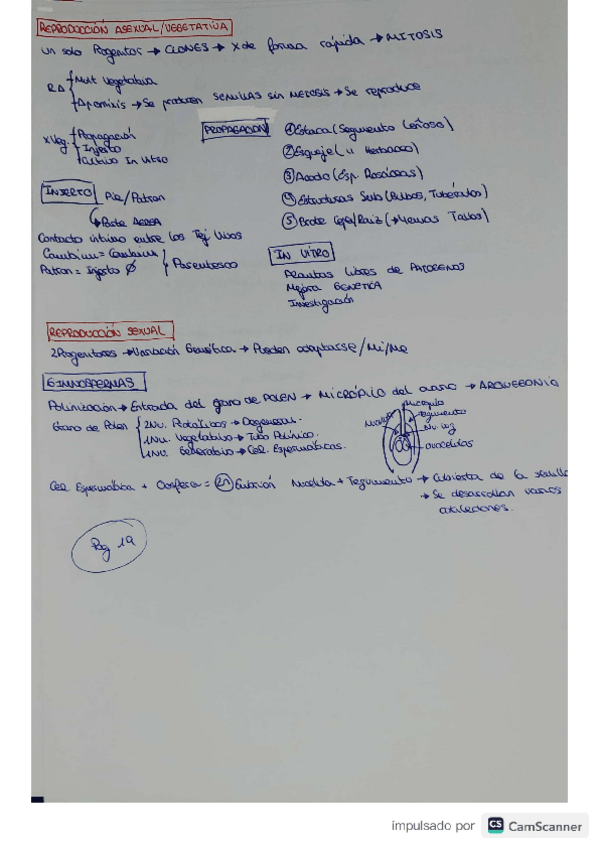 REPRODUCCIÓN ASEXUAL/VEGETATIVA
Un solo Progenitor → CLONES → X de forma rápida → MITOSIS
RA { Mult Vegetativa
Apomixis → Se producen SEMILLAS sin MEIOSIS → Se reproduce
X Veg. { Propagación
Injerto
Cultivo In Vitro
PROPAGACIÓN
① Estaca (Segmento Leñoso)
② Esqueje (u Herbáceo)
③ Acodo (Esp. Rosáceas)
④ Estructuras Sub (Bulbos, Tubérculos)
⑤ Brote Cepa/Raiz (→ Yemas Tallos)
INJERTO Pie/Patron
↳ Parte AEREA
Contacto íntimo entre los Tej Vivos
Cambium = Cambium
Patron = Injerto Ø } Parentesco
IN VITRO
Plantas libres de PATOGENOS
Mejora GENETICA
Investigación
REPRODUCCIÓN SEXUAL
2 Progenitores → Variación Genética → Pueden adaptarse/Mi/Me
GIMNOSPERMAS
Polinización → Entrada del grano de POLEN → MICROPILO del ovulo → ARQUEGONIO
Grano de Polen { 2 Nu. Protalicos → Degeneran.
1 Nu. Vegetativo → Tubo Polínico.
1 Nu. Generativo → Cel. Espermáticas.
Micropilo
Nucela
Tegumento
Cel Espermática + Oosfera = 2n Embrión Nucela + Tegumento → Cubierta de la semilla
→ Se desarrollan varios
cotiledones.
Pag 19
impulsado por CS CamScanner